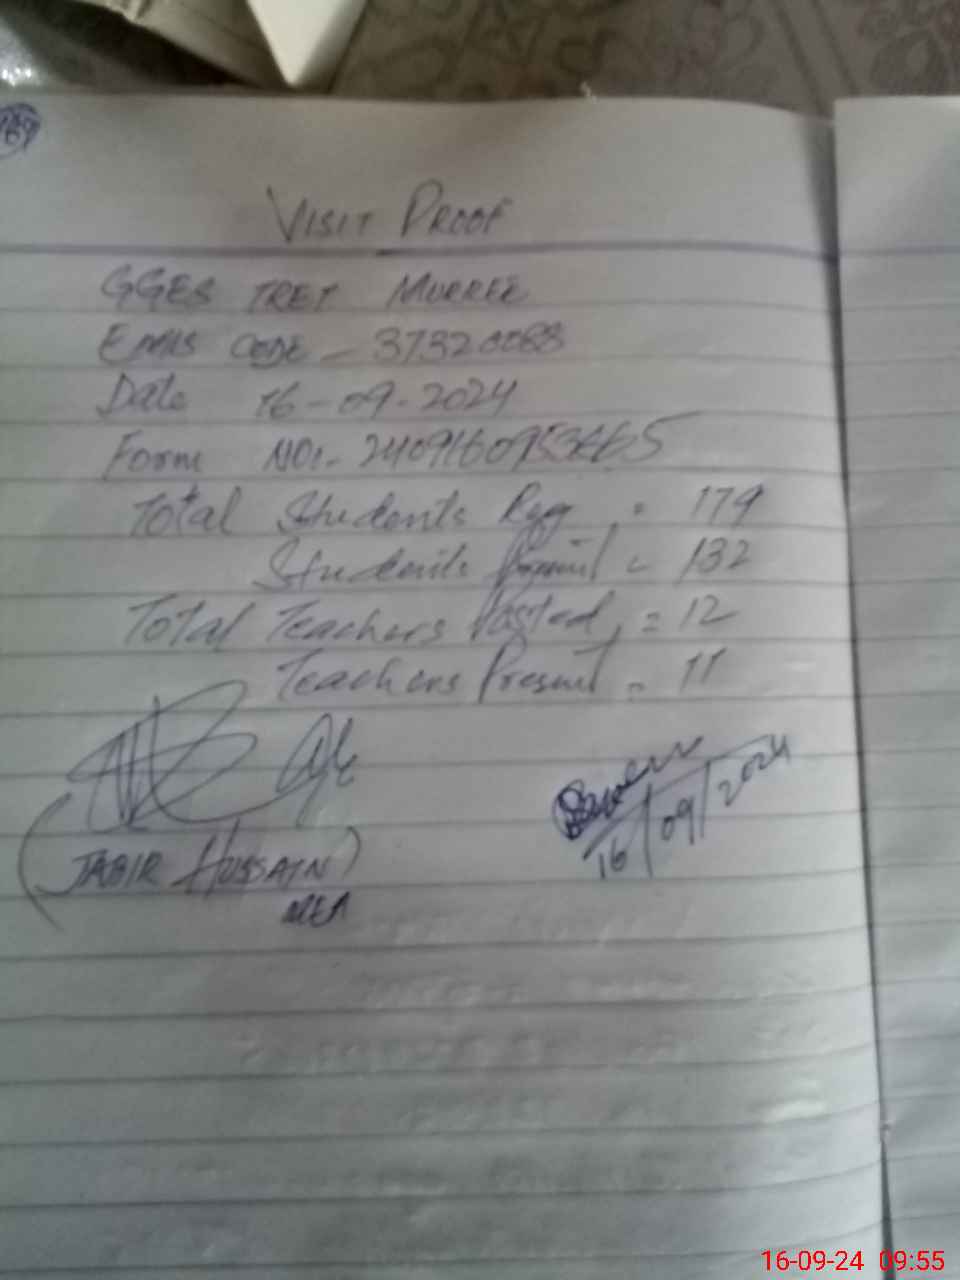 169
VISIT PROOF
GGES TRET MURREE
EMIS CODE - 37320088
Date 16-09-2024
Form NO:-
Total Students Reg = 179
Students Present = 132
Total Teachers Posted = 12
Teachers Present = 11
(JABIR HUSSAIN)
MEA
16/09/2024
16-09-24 09:55